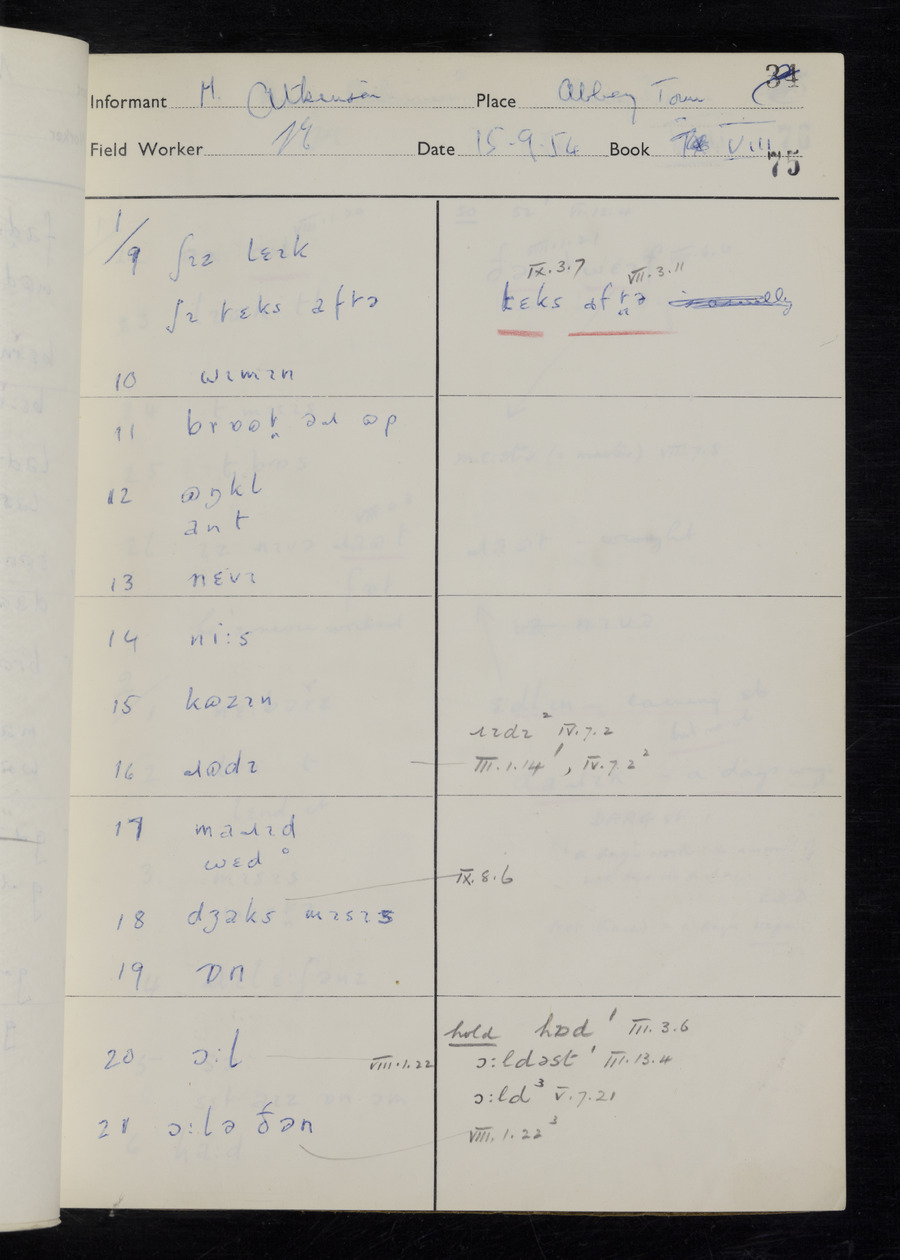 34
Informant H. Atkinson Place Abbey Town
Field Worker Date 15-9-54 Book VIII
75
1/9 ʃɪz lɛɪk
IX.3.7 VII.3.11
ʃɪ tɛks aftə tɛks aftə
10 wɪmɪn
11 əɹ ɷp
12 ɷŋkl
ant
13 nɛvɪ
14 ni:s
15 kɷzɪn
ɹɪdɪ ² IV.7.2
16 ɹɷdɪ III.1.14 ¹, IV.7.2 ²
17 maɹɪd
wɛd °
IX.8.6
18 dʒaks mɪsɪs
19 ɒn
hold hɒd ¹ III.3.6
20 ɔ:l VIII.1.22 ɔ:ldəst ¹ III.13.4
ɔ:ld ³ V.7.21
21 ɔ:lə ðən VIII.1.22 ³